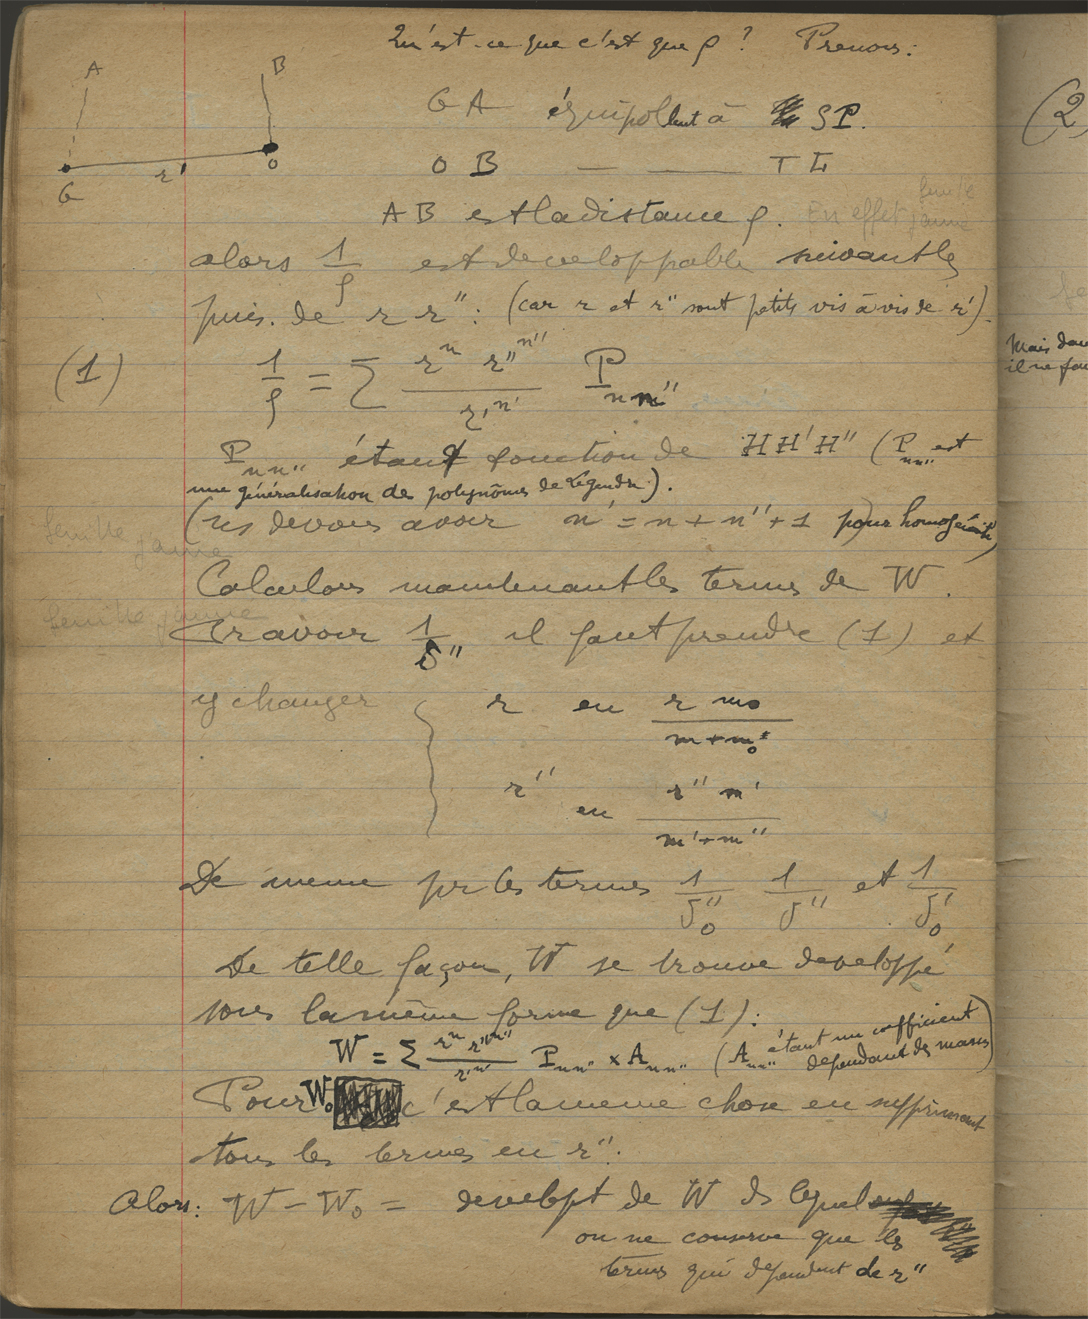 Qu'est-ce que c'est que ρ ? Prenons :
A B
G r' O
GA équipollent à SP.
OB — —— TL
AB est la distance ρ. En effet
feuille jaune
alors 1/ρ est développable suivant les
puis. de r r" : (car r et r" sont petits vis à vis de r').
(1) 1/ρ = Σ r^n r"^n" / r'^n' P_nn"
P_nn" étant fonction de H H' H" (P_nn" est
une généralisation des polynômes de Legendre).
(ns devons avoir n' = n + n" + 1 pour homogénéité)
feuille jaune
Calculons maintenant les termes de W.
feuille jaune
Pr avoir 1/δ" il faut prendre (1) et
y changer { r en r m₀ / m + m₀
r" en r" m' / m' + m"
De même pr les termes 1/δ"₀ 1/δ" et 1/δ'₀
De telle façon, W se trouve developpé
sous la même forme que (1) :
W = Σ r^n r"^n" / r'^n' P_nn" × A_nn" (A_nn" étant un coefficient dépendant des masses)
Pour W₀ c'est la meme chose en supprimant
tous les termes en r".
Alors : W − W₀ = developt de W ds lequel
on ne conserve que les
termes qui dépendent de r"
(2
Mais dan
il ne fau